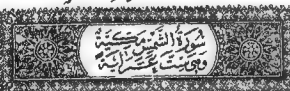 سُورَةُ الشَّمْسِ مَكِّيَّةٌ
وَهِيَ خَمْسَ عَشْرَةَ آيَةً